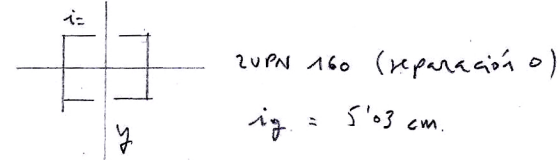 i=
2UPN 160 (separación 0)
iy = 5'03 cm.
y